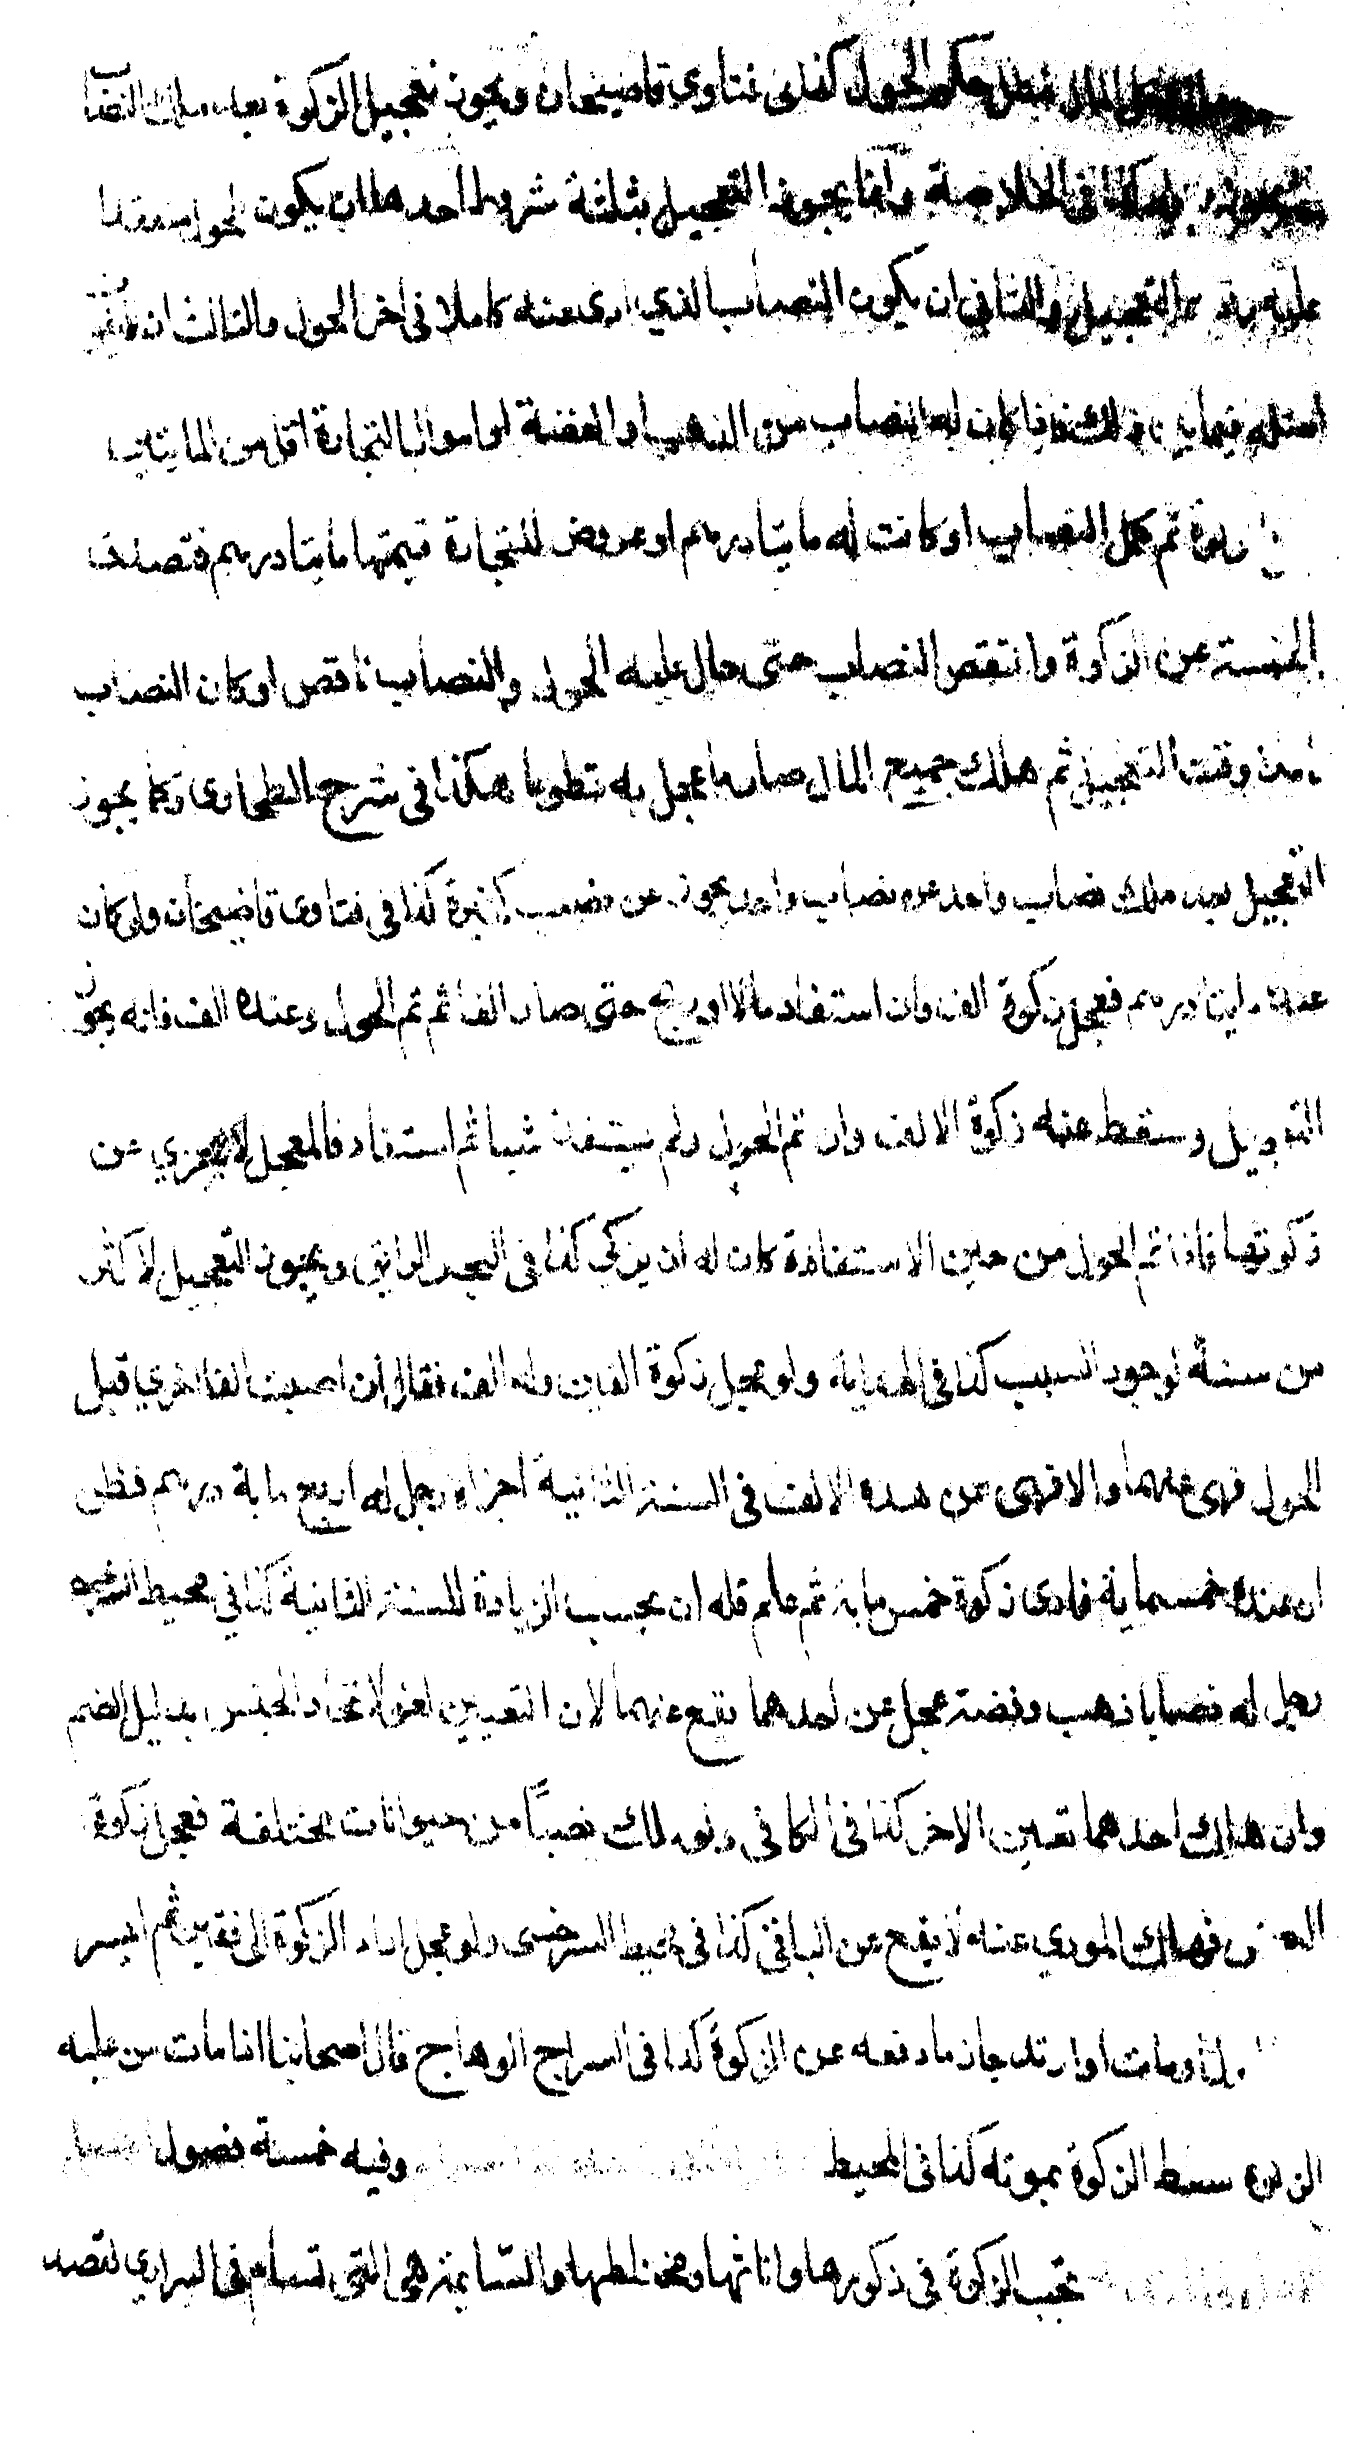 المال بطل حكم الحول كذا فى فتاوى قاضيخان ويجوز تعجيل الزكوة بعد ملك النصاب
كذا فى الخلاصة وانما يجوز التعجيل بثلثة شروط احدها ان يكون الحول منعقدا
عليه وقت التعجيل والثانى ان يكون النصاب الذى ادى عنه كاملا فى اخر الحول والثالث ان لا يفوت
اصله فيما بين ذلك فاذا كان له النصاب من الذهب او الفضة او اموال التجارة اقل من المايتين
ثم كمل النصاب او كانت له مايتا درهم او عروض للتجارة قيمتها مايتا درهم فتصدق
الخمسة عن الزكوة وانتقص النصاب حتى حال عليه الحول والنصاب ناقص او كان النصاب
كاملا وقت التعجيل ثم هلك جميع المال صار ما عجل به تطوعا هكذا فى شرح الطحاوى وكما يجوز
التعجيل بعد ملك نصاب واحد عن نصاب واحد يجوز عن نصب كثيرة كذا فى فتاوى قاضيخان ولو كان
عنده مايتا درهم فعجل زكوة الف فان استفاد مالا او ربح حتى صار الفا ثم تم الحول وعنده الف فانه يجوز
التعجيل وسقط عنه زكوة الالف وان تم الحول ولم يستفد شيا ثم استفاد فالمعجل لا يجزي عن
زكوتها فاذا تم الحول من حين الاستفادة كان له ان يزكي كذا فى البحر الرايق ويجوز التعجيل لاكثر
من سنة لوجود السبب كذا فى الهداية ولو عجل زكوة الفين وله الف فقال ان اصبت الفا اخرى قبل
الحول فهى عنهما والا فهى عن هذه الالف فى السنة الثانية اجزاه رجل له اربع ماية درهم فظن
ان عنده خمسماية فادى زكوة خمس ماية ثم علم فله ان يحسب الزيادة للسنة الثانية كذا في محيط السرخسى
رجل له نصابا ذهب وفضة عجل عن احدهما يقع عنهما لان التعيين لغو لاتحاد الجنس بدليل الضم
وان هلك احدهما تعين الاخر كذا فى الكافى ولو ملك نصبًا من حيوانات مختلفة فعجل زكوة
فهلك المودى عنه لا يقع عن الباقى كذا فى محيط السرخسى ولو عجل اداء الزكوة الى فقير ثم ايسر
او مات او ارتد جاز ما دفعه عن الزكوة كذا فى السراج الوهاج قال اصحابنا اذا مات من عليه
الزكوة سقط الزكوة بموته كذا فى المحيط وفيه خمسة فصول
تجب الزكوة فى ذكورها واناثها ومختلطهما والسايمة هى التى تسام فى البراري لقصد